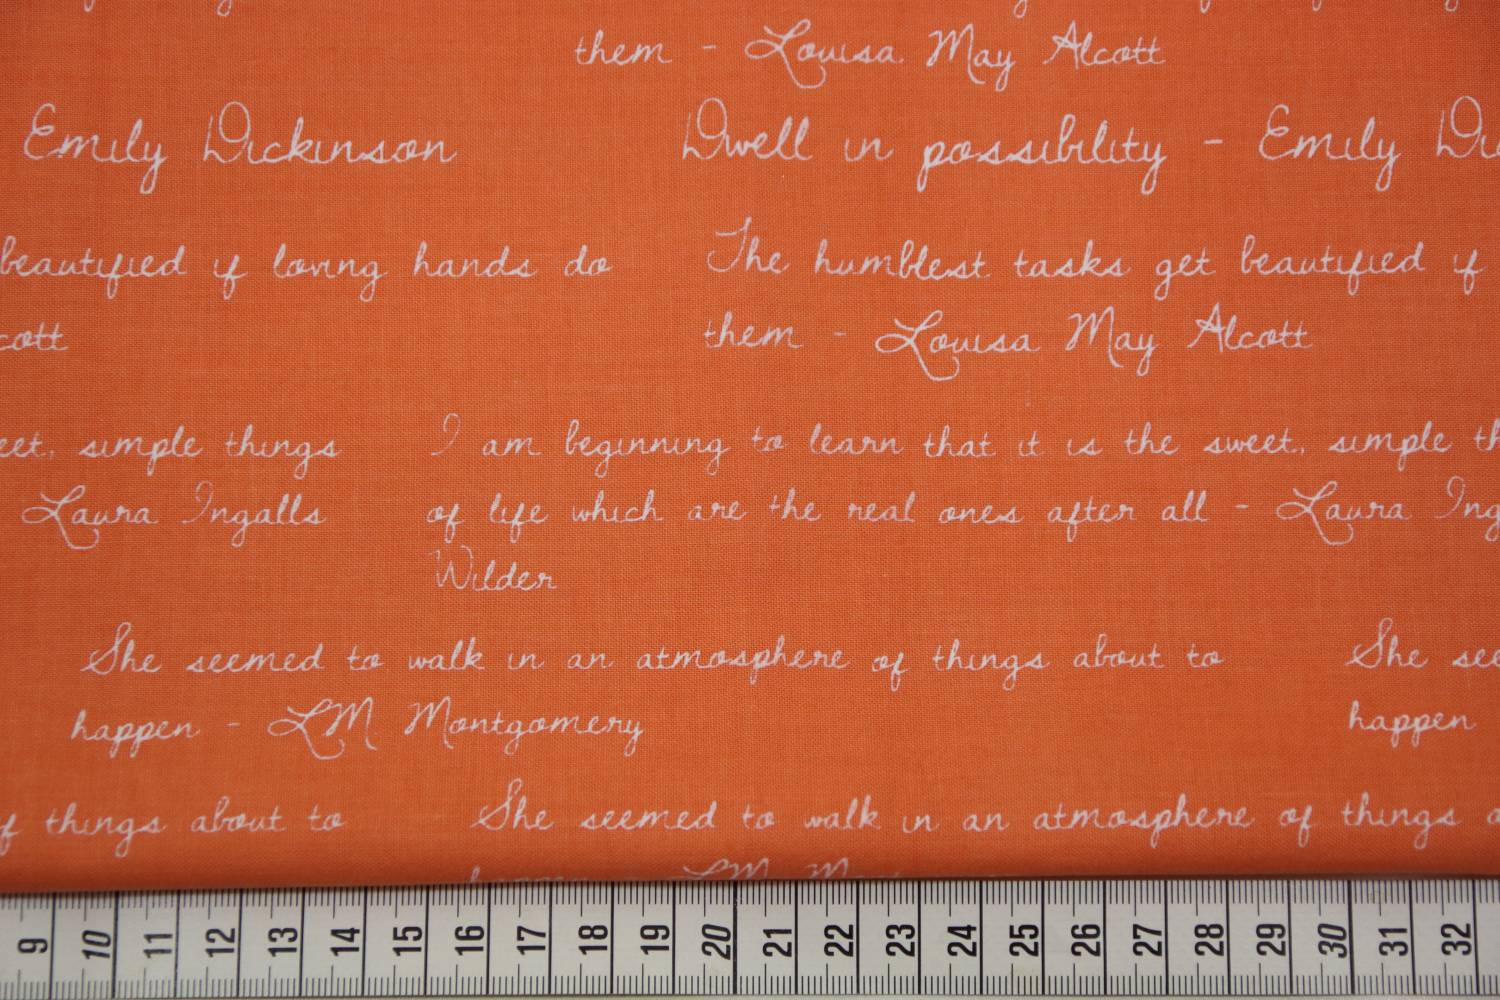 them - Louisa May Alcott
Emily Dickinson Dwell in possibility - Emily
beautified if loving hands do The humblest tasks get beautified if
cott them - Louisa May Alcott
eet, simple things I am beginning to learn that it is the sweet, simple th
Laura Ingalls of life which are the real ones after all - Laura Ing
Wilder
She seemed to walk in an atmosphere of things about to She see
happen - LM Montgomery happen
f things about to She seemed to walk in an atmosphere of things a
9 10 11 12 13 14 15 16 17 18 19 20 21 22 23 24 25 26 27 28 29 30 31 32